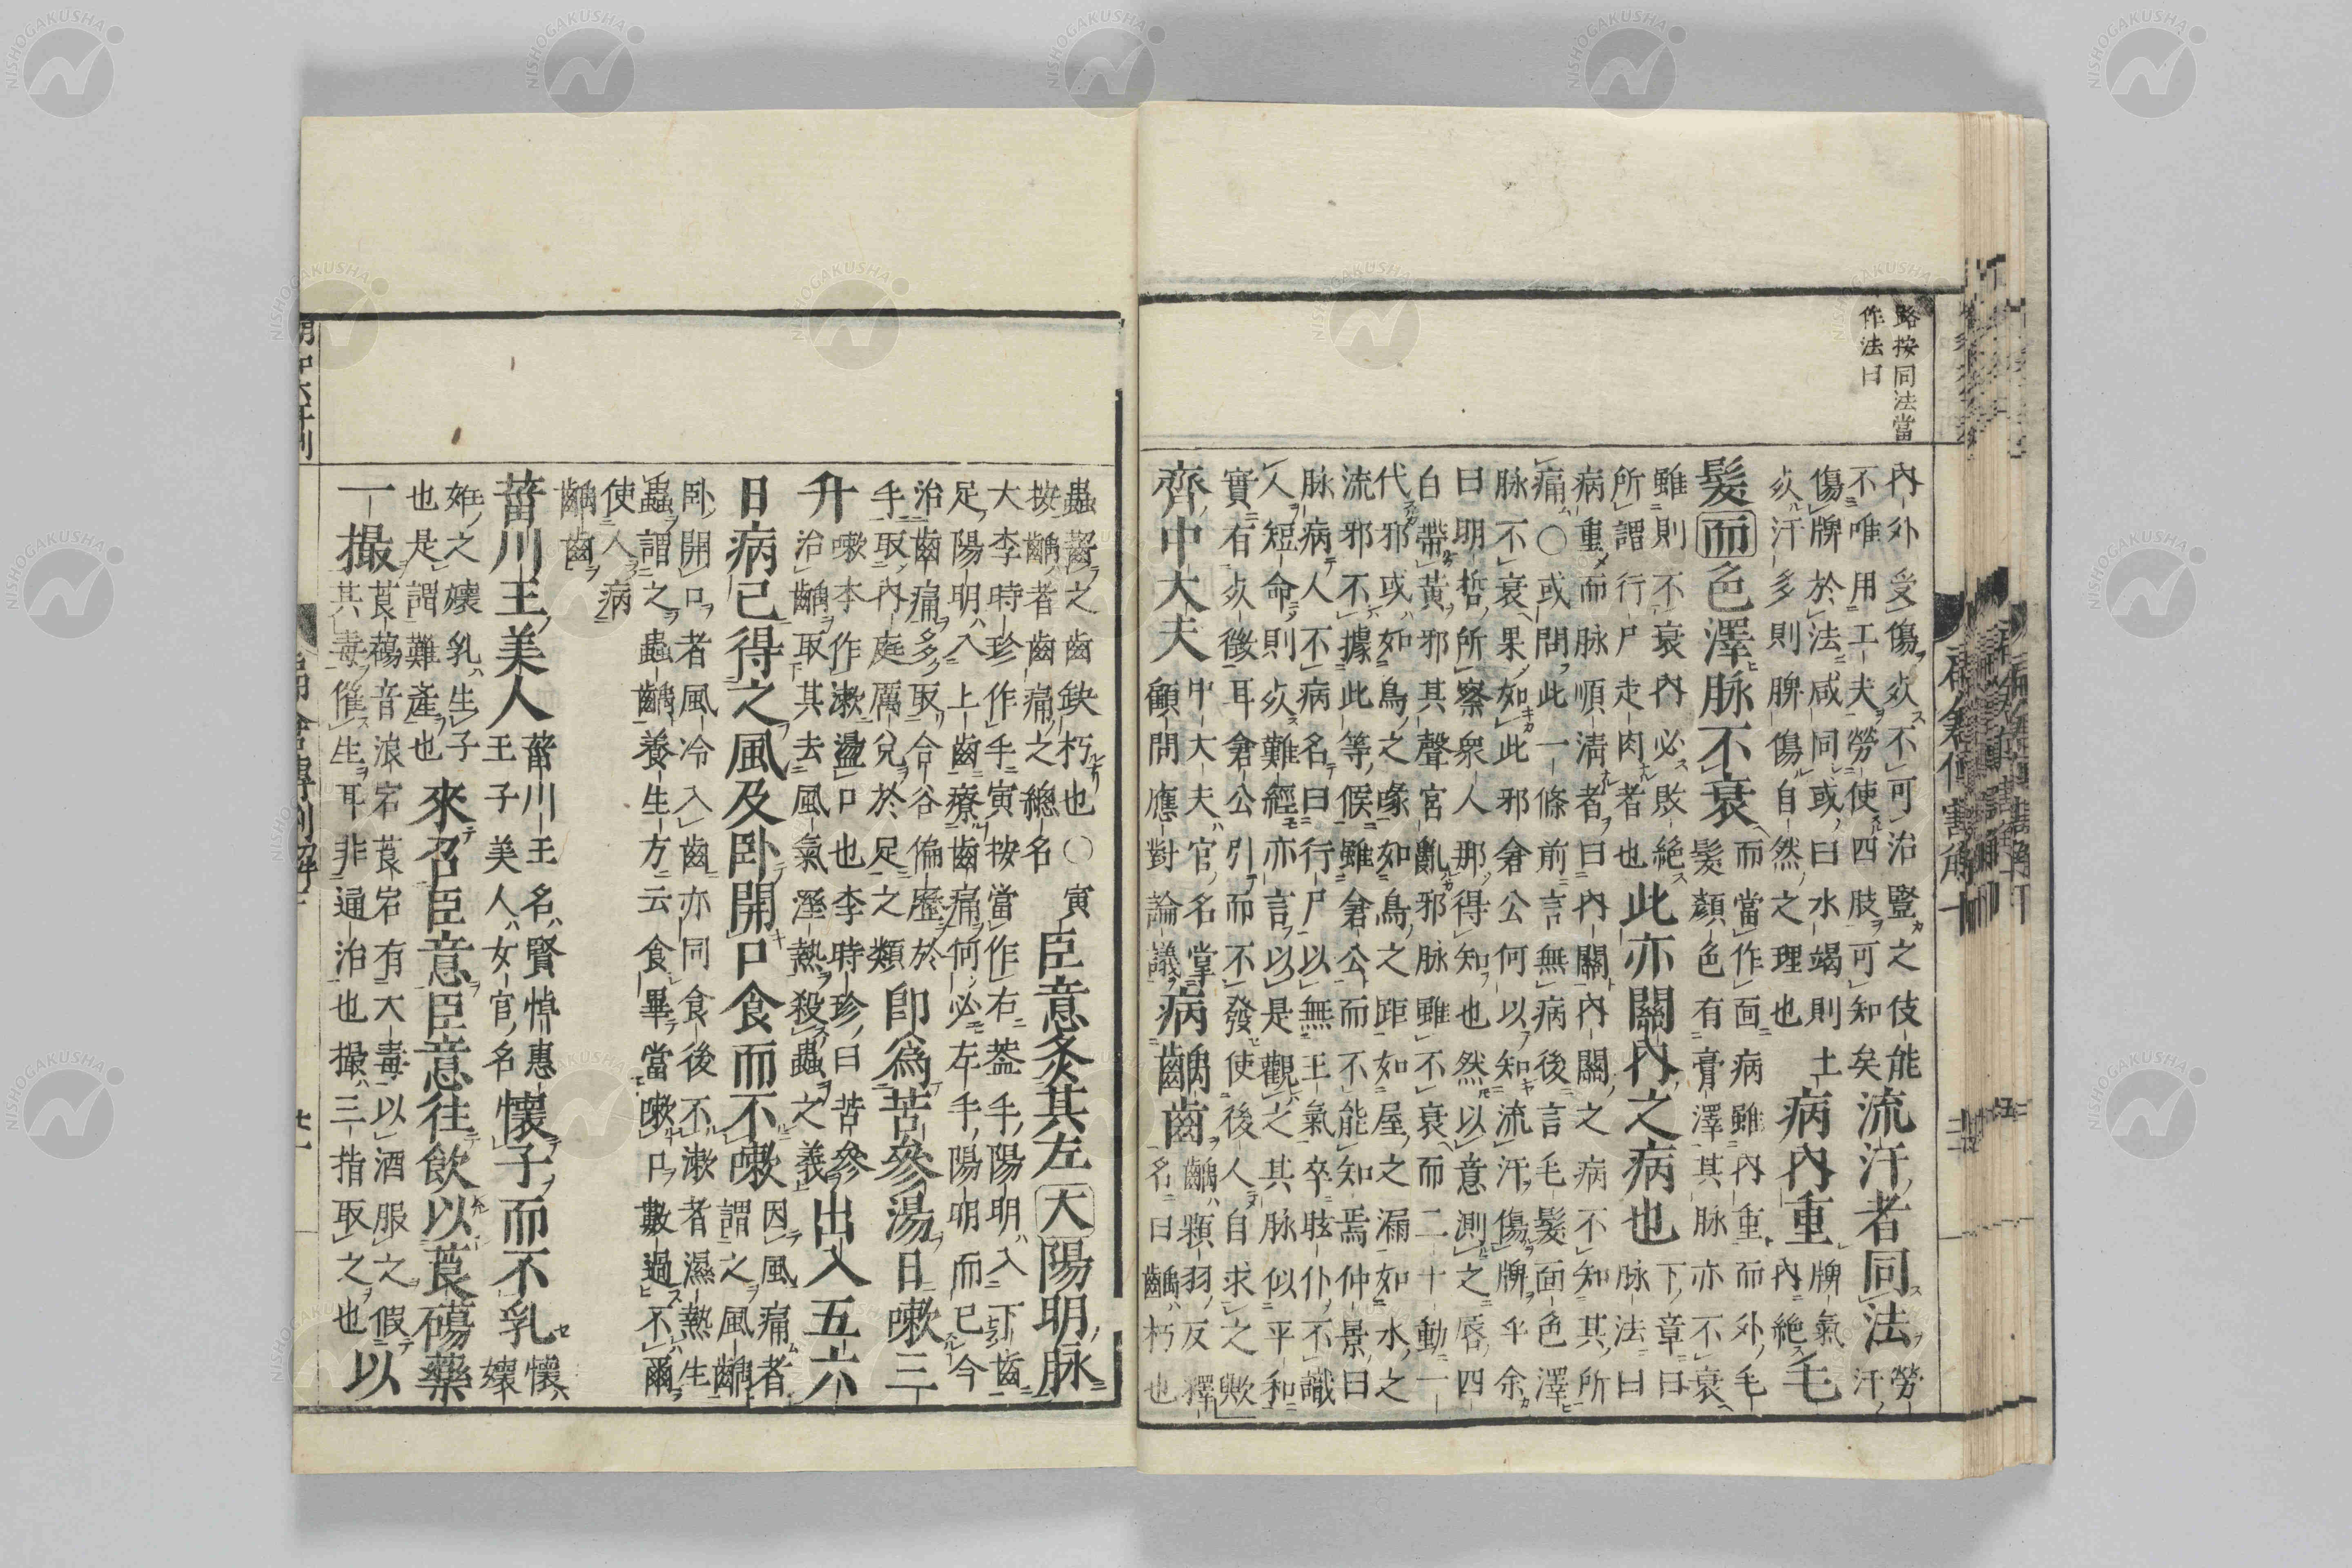 路按同法當
作法曰
內外受傷必不可治豎之伎能
不唯用工夫勞使四肢可知矣
流汗者同法
勞
汗
傷脾於法咸同或曰水竭則土
必汗多則脾傷自然之理也
病內重
脾氣
內絶
毛
髮而色澤脉不衰
而當作面病雖內重而外毛
髮顏色有膏澤其脉亦不衰
雖則不衰內必敗絶
所謂行尸走肉者也
此亦關內之病也
下章曰
脉法曰
病重而脉順淸者曰內關內關之病不知其所
痛○或問此一條前言無病後言毛髮面色澤
脉不衰果如此邪倉公何以知流汗傷脾乎余
曰明哲所察衆人那得知也然以意測之唇四
白帶黃邪其聲宮亂邪脉雖不衰而二十動一
代邪或如鳥之喙如鳥之距如屋之漏如水之
流邪不據此等候雖倉公而不能知焉仲景曰
脉病人不病名曰行尸以無王氣卒眩仆不識
人短命則必難經亦言以是觀之其脉似平和
實有必徵耳倉公引而不發使後人自求之歟
齊中大夫
中大夫官名掌
顧問應對論議
病齲齒
齲顆羽反釋
名曰齲朽也
蟲齧之齒缺朽也○寅
按齲者齒痛之總名
臣意灸其左大陽明脉
大李時珍作手寅按當作右葢手陽明入下齒
足陽明入上齒療齒痛何必左手陽明而已今
治齒痛多取合谷偏歷於
手取內庭厲兌於足之類
卽爲苦參湯日嗽三
升
嗽本作漱盪口也李時珍曰苦參
治齲取其去風氣溼熱殺蟲之義
出入五六
日病已得之風及卧開口食而不嗽
因風痛者
謂之風齲
卧開口者風冷入齒亦同食後不漱者濕熱生
蟲謂之蟲齲養生方云食畢當嗽口數過不爾
使人病
齲齒
菑川王美人
菑川王名賢悼惠
王子美人女官名
懷子而不乳
懷
孃
妊之孃乳生子
也是謂難產也
來召臣意臣意往飲以莨䕞藥
一撮
莨䕞音浪宕莨宕有大毒以酒服之假
其毒催生耳非通治也撮三指取之也
以